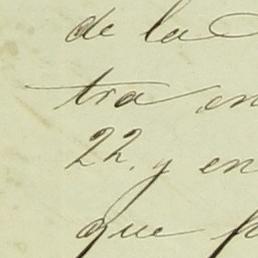 de la
tra en
22. y en
que